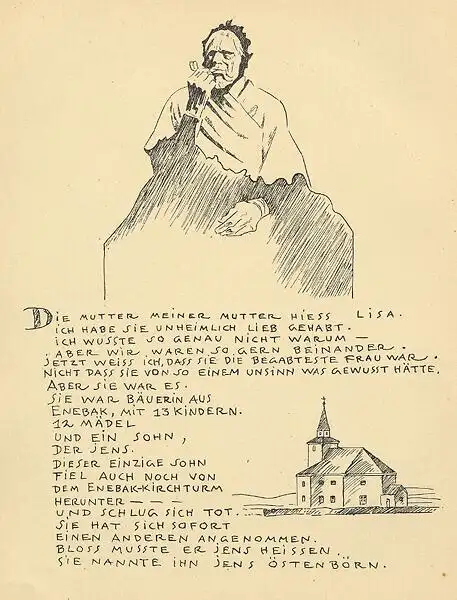 DIE MUTTER MEINER MUTTER HIESS LISA.
ICH HABE SIE UNHEIMLICH LIEB GEHABT.
ICH WUSSTE SO GENAU NICHT WARUM –
ABER WIR WAREN SO GERN BEINANDER.
JETZT WEISS ICH, DASS SIE DIE BEGABTESTE FRAU WAR.
NICHT DASS SIE VON SO EINEM UNSINN WAS GEWUSST HÄTTE.
ABER SIE WAR ES.
SIE WAR BÄUERIN AUS
ENEBAK, MIT 13 KINDERN.
12 MÄDEL
UND EIN SOHN,
DER JENS.
DIESER EINZIGE SOHN
FIEL AUCH NOCH VON
DEM ENEBAK-KIRCHTURM
HERUNTER – –
UND SCHLUG SICH TOT...
SIE HAT SICH SOFORT
EINEN ANDEREN ANGENOMMEN.
BLOSS MUSSTE ER JENS HEISSEN..
SIE NANNTE IHN JENS ÖSTENBÖRN.